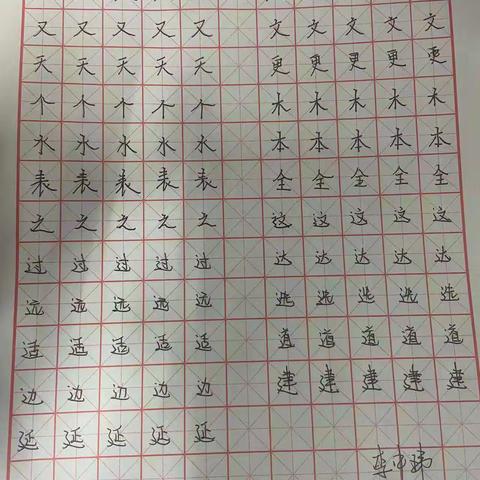 又又又又又 文文文文文
天天天天天 更更更更更
个个个个个 木木木木木
水水水水水 本本本本本
表表表表表 全全全全全
之之之之之 这这这这这
过过过过过 达达达达达
远远远远远 选选选选选
适适适适适 道道道道道
边边边边边 建建建建建
延延延延延